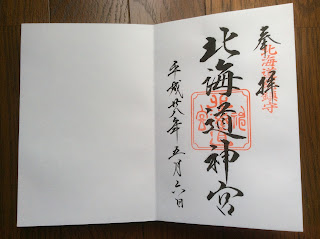 奉拝
北海道総鎮守
北海道神宮
平成廿八年五月六日